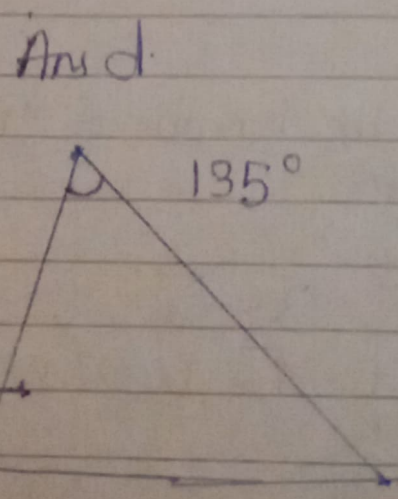 Ans d.
135°